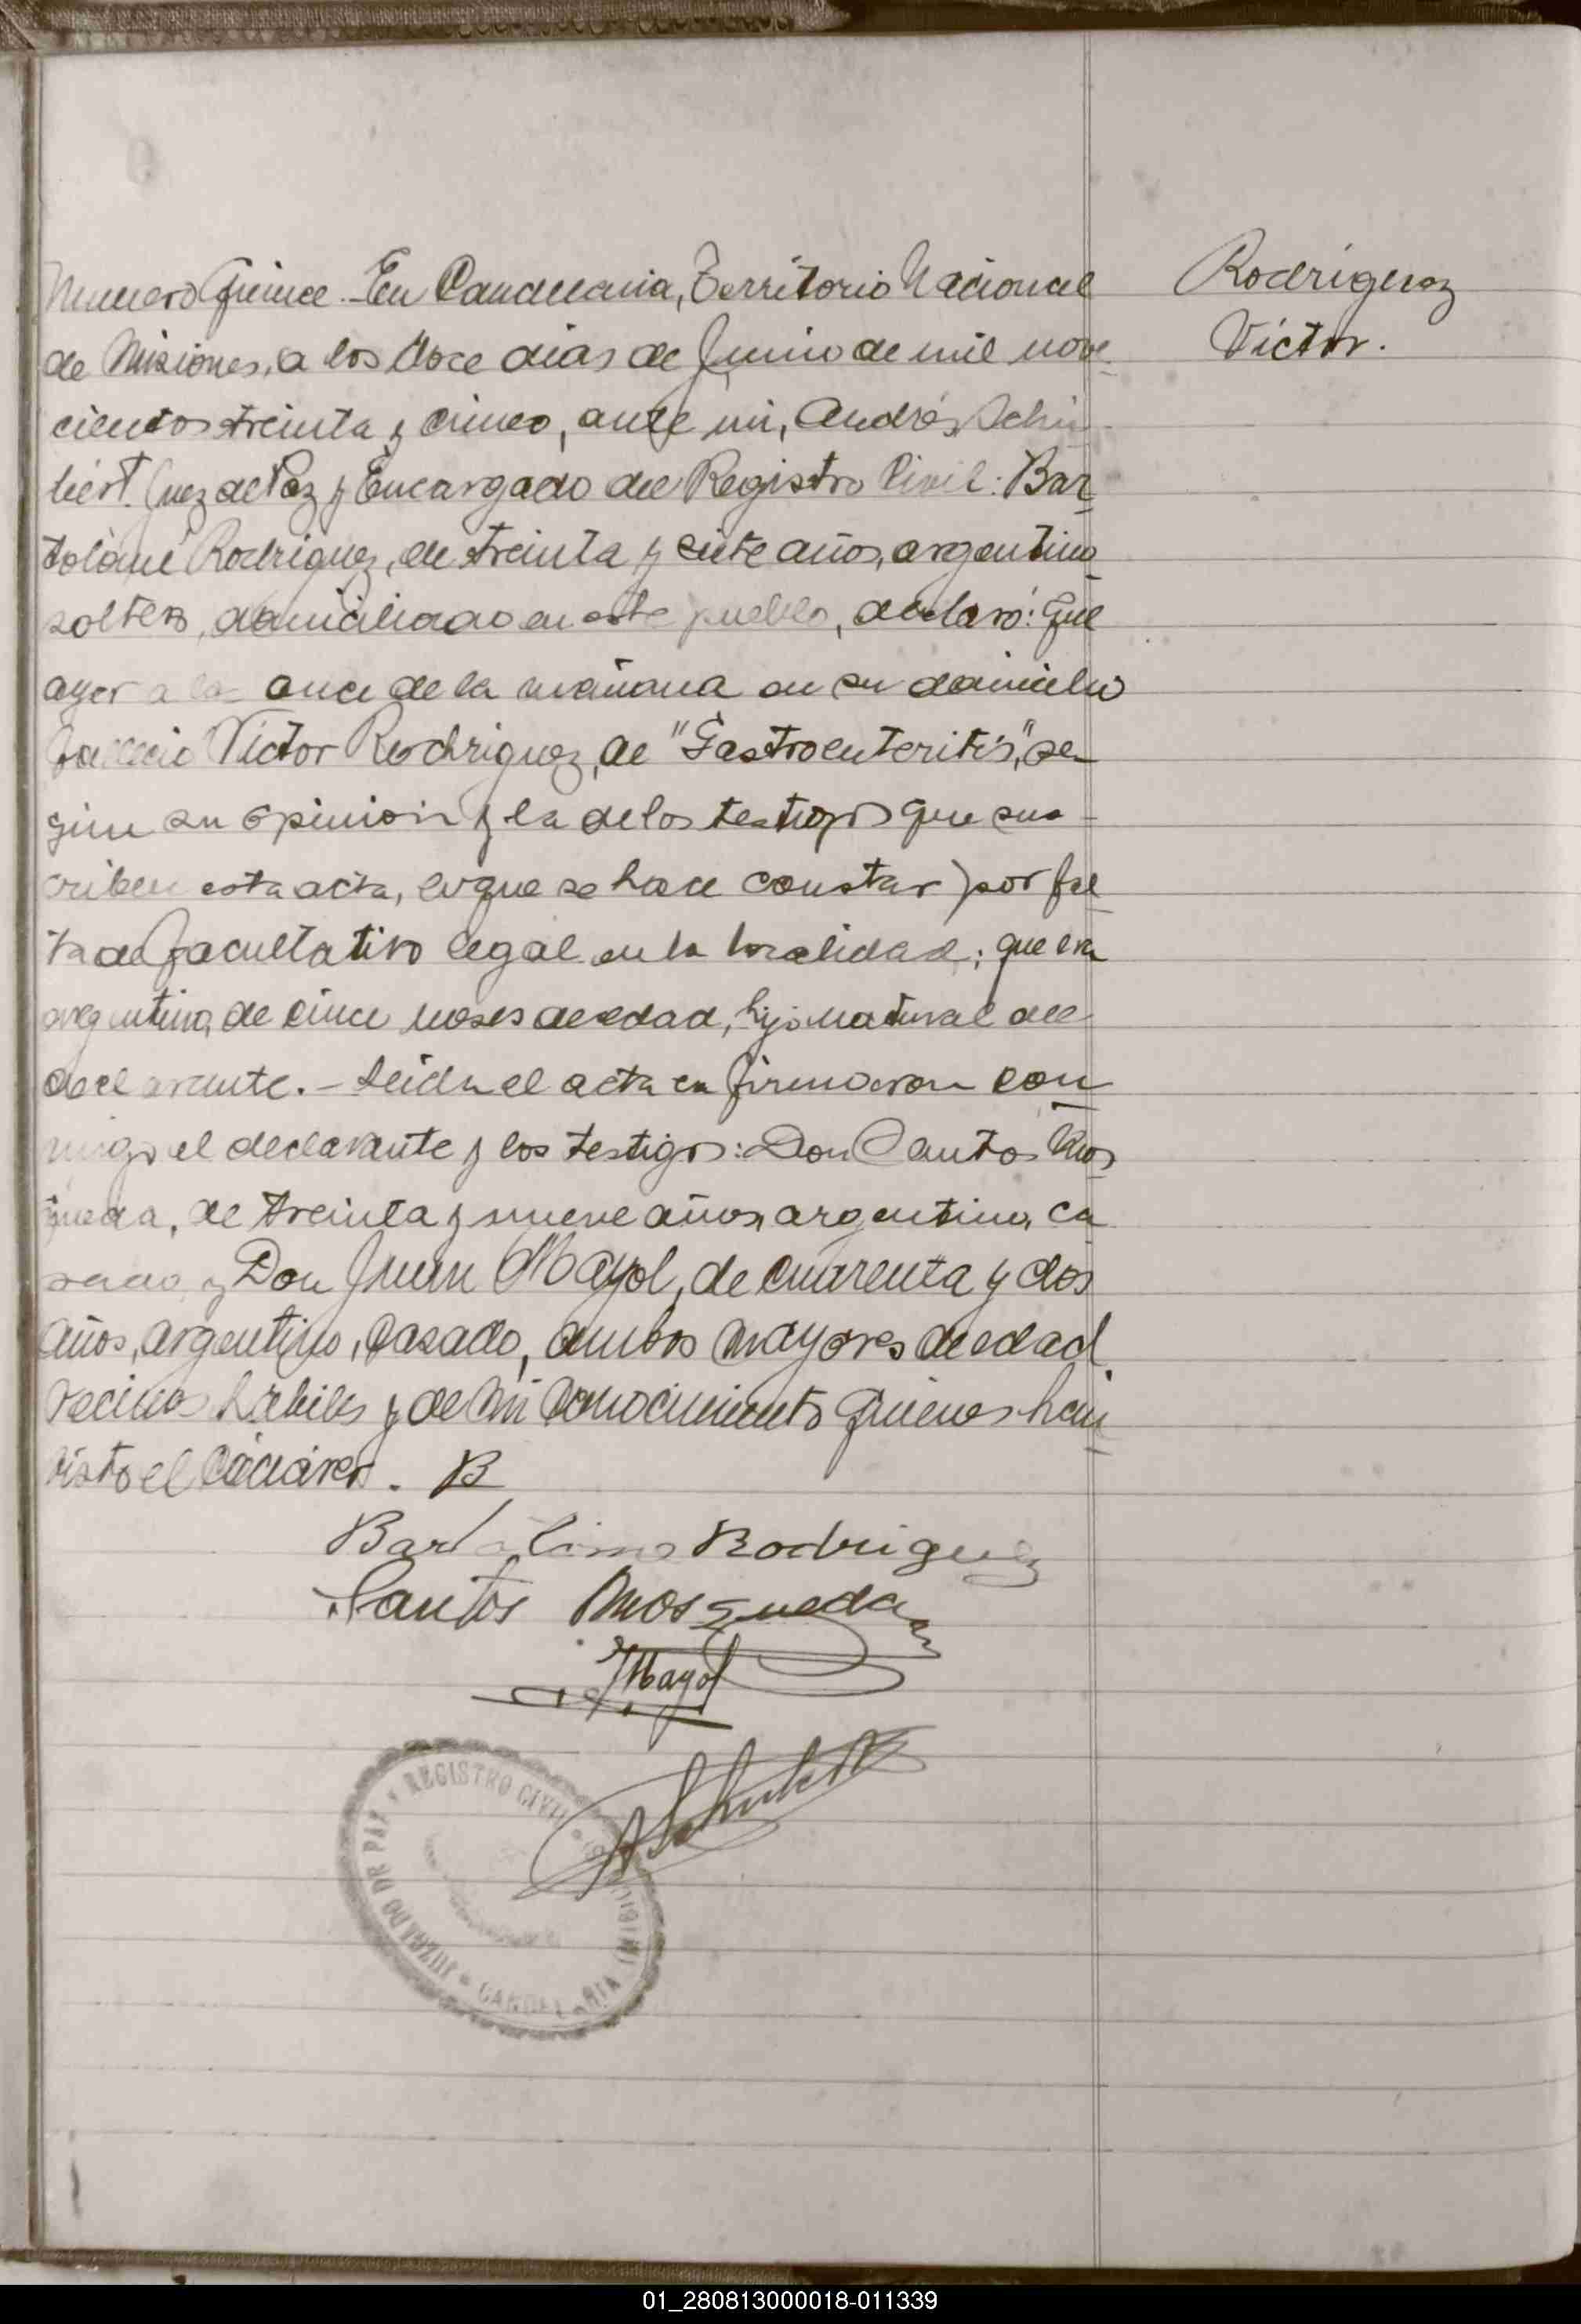 Numero Quince.- En Candelaria, Territorio Nacional
de Misiones, a los doce dias de Junio de mil nove
cientos treinta y cinco, ante mi, Andrés Schu
bert. Juez de Paz y Encargado del Registro Civil: Bar
tolomé Rodriguez, de treinta y siete años, argentino
soltero, domiciliado en este pueblo, declaró: Que
ayer a las once de la mañana en su domicilio
falleció Victor Rodriguez, de "Gastroenteritis", se-
gun su opinion y la de los testigos que sus-
criben esta acta, lo que se hace constar por fal
ta de facultativo legal en la localidad; que era
argentino, de cinco meses de edad, hijo natural del
declarante.- Leida el acta la firmaron con
migo el declarante y los testigos: Don Santos Mos
queda, de treinta y nueve años, argentino, ca
sado, y Don Juan Mayol, de cuarenta y dos
años, argentino, casado, ambos mayores de edad
vecinos habiles y de mi conocimiento quienes han
visto el cadáver. B
Rodriguez
Victor.
Bartolome Rodriguez
Santos Mosqueda
J Mayol
A Schubert
JUZGADO DE PAZ Y REGISTRO CIVIL
CANDELARIA
01_280813000018-011339